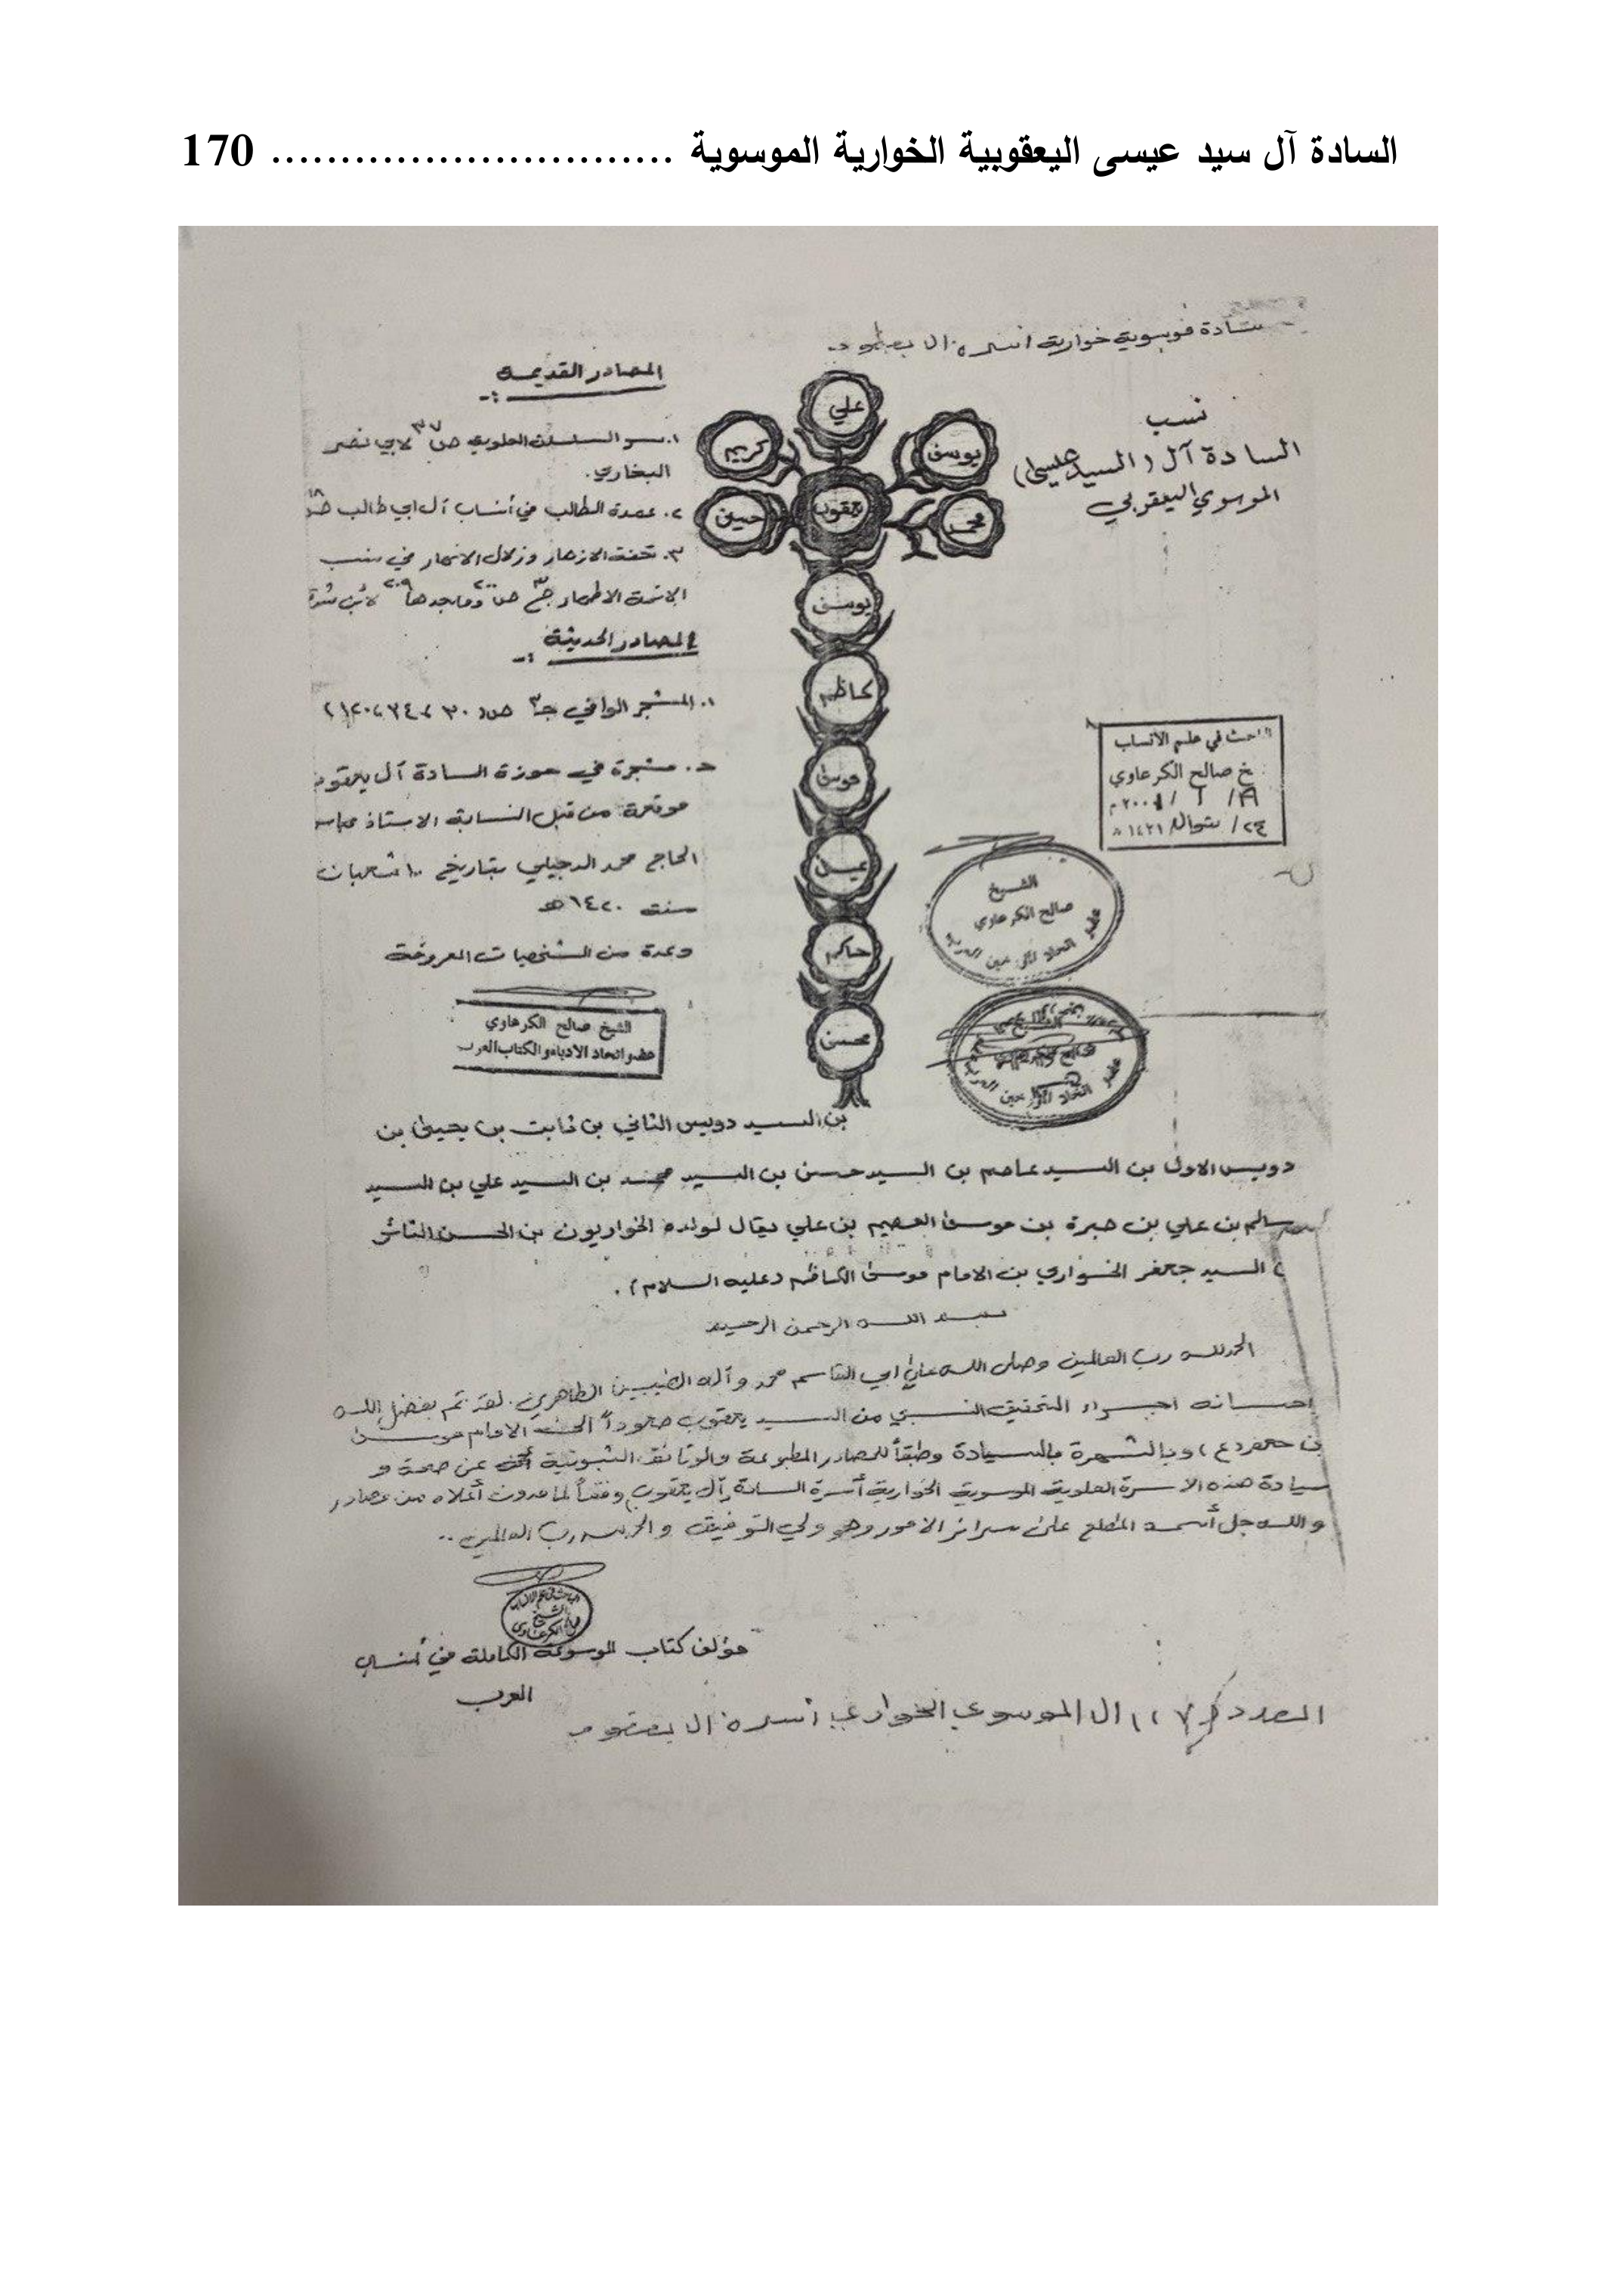 السادة آل سيد عيسى اليعقوبية الخوارية الموسوية ............................. 170
خوارية اسرة ال
نسب
السادة آل (السيد عيسى)
الموسوي اليعقوبي
المصادر القديمة
١. سر السلسلة العلوية ص ٣٧ لابي نصر
البخاري.
٢. عمدة الطالب في أنساب آل ابي طالب
٣. تحفة الازهار وزلال الانهار في نسب
الائمة الاطهار ج٣ ص ٢٠٠ وما بعدها ٢٠٩ لأبن
المصادر الحديثة
١. المشجر الوافي ج٣
مشجرة في حوزة السادة آل يعقوب
موقعة من قبل النسابة الاستاذ
الحاج محمد الدجيلي بتاريخ ١٠ شعبان
سنة ١٤٢٠هـ
وعدة من الشخصيات المعروفة
علي
كريم
يوسف
حسين
يعقوب
محمد
يوسف
كاظم
موسى
حاكم
محسن
الباحث في علم الأنساب
صالح الكرعاوي
شوال / ١٤٢١ هـ
الشيخ
صالح الكرعاوي
اتحاد
الشيخ صالح الكرعاوي
عضو اتحاد الادباء والكتاب العرب
بن السيد دويس الثاني بن ثابت بن يحيى بن
دويس الاول بن السيد عاصم بن السيد حسن بن السيد محمد بن السيد علي بن السيد
سالم بن علي بن صبرة بن موسى العصيم بن علي يقال لولده الخواريون بن الحسن الثائر
السيد جعفر الخواري بن الامام موسى الكاظم (عليه السلام).
بسم الله الرحمن الرحيم
الحمد لله رب العالمين وصلى الله على ابي القاسم محمد وآله الطيبين الطاهرين. لقد تم بفضل الله
احسانه اجراء التحقيق النسبي من السيد يعقوب صعوداً الى الامام موسى
بن جعفر (ع) وبالشهرة بالسيادة وطبقاً للمصادر المطبوعة والوثائق الثبوتية عن صحة و
سيادة هذه الاسرة العلوية الموسوية الخوارية أسرة السادة (آل يعقوب) وفقاً لما مدون أعلاه من مصادر
والله جل أسمه المطلع على سرائر الامور وهو ولي التوفيق والحمد لله رب العالمين..
مؤلف كتاب الموسوعة الكاملة في أنساب
العرب
العدد ال الموسوي الخواري اسرة ال يعقوب